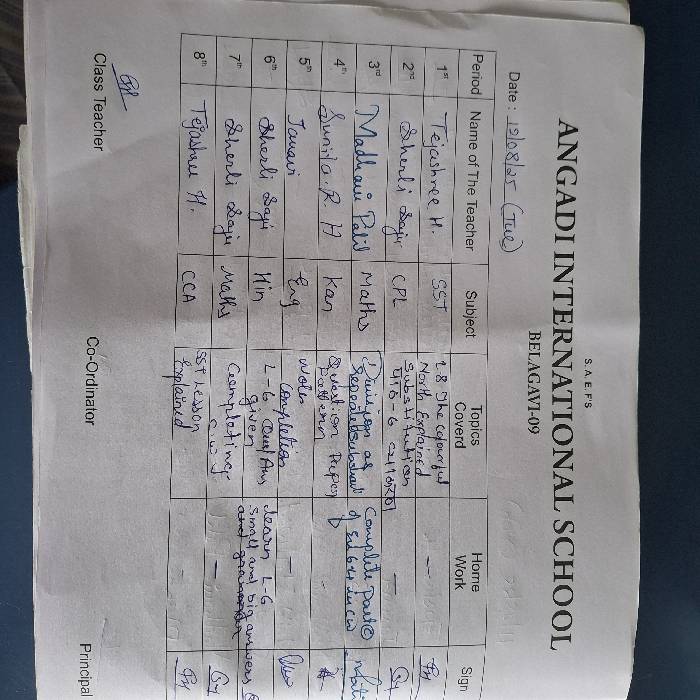 S.A.E.F'S
ANGADI INTERNATIONAL SCHOOL
BELAGAVI-09
Date : 12/08/25 (Tue)
Period Name of The Teacher Subject Topics Coverd Home Work Sign
1st Tejashree H. SST L8 The colourful North Explained -
2nd Sherli Saji CPL Substitution -
3rd Madhavi Patil Maths Division as repeated subtract Complete Part of in CW
4th Sunita. R. H Kan Question Paper Pattern -
5th Janavi Eng Notes Completion -
6th Sherli Saji Hin L-6 Que/Ans given learn L-6 small and big answers
7th Sherli Saji Maths Completing C.W -
8th Tejashree H. CCA SST Lesson Explained -
Class Teacher Co-Ordinator Principal